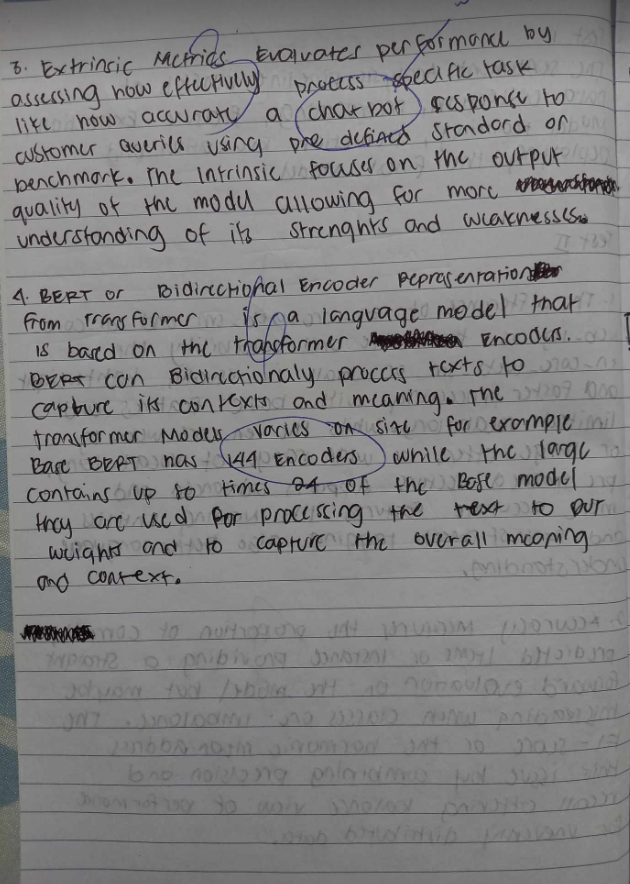 3. Extrinsic Metrics Evaluates performance by
assessing how effectively process specific task
like how accurate a chatbot response to
customer queries using pre defined standard or
benchmark. The Intrinsic focuses on the output
quality of the model allowing for more
understanding of its strenghts and weaknesses.
4. BERT or Bidirectional Encoder Representation
from Transformer is a language model that
is based on the transformer Encoders.
BERT can Bidirectionaly process texts to
capture its contexts and meaning. The
transformer Models varies on size for example
Base BERT has 144 Encoders while the large
contains up to times 24 of the Base model
they are used for processing the text to put
weights and to capture the overall meaning
and context.